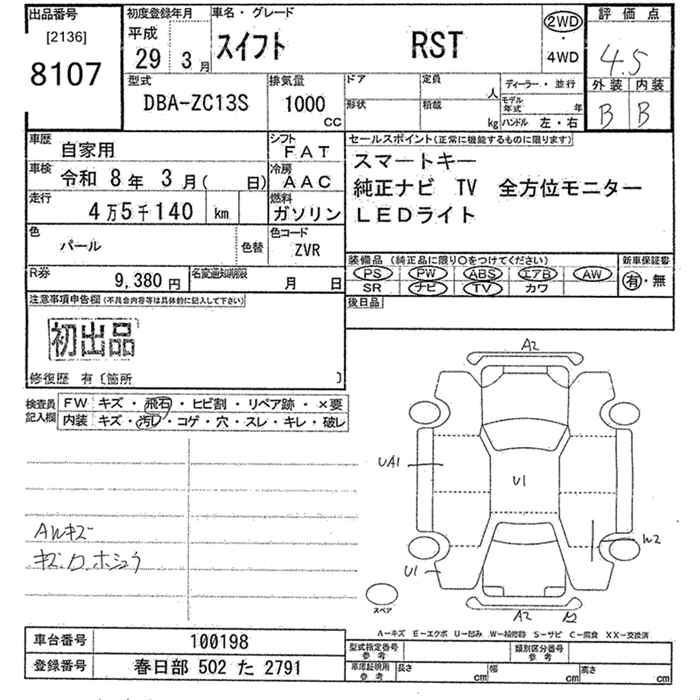 出品番号 初度登録年月 車名・グレード 評価点
[2136] 平成
8107 29 3月 スイフト RST 2WD・4WD 4.5
型式 排気量 ドア 定員 人 ディーラー・並行 外装 内装
DBA-ZC13S 1000cc 形状 積載 kg モデル年式 年 B B
ハンドル 左・右
車歴 自家用 シフト FAT
セールスポイント(正常に機能するものに限ります)
車検 令和 8年 3月( 日) 冷房 AAC
スマートキー
純正ナビ TV 全方位モニター
LEDライト
走行 4万5千140 km 燃料 ガソリン
色 パール 色替 色コード ZVR
装備品 (純正品に限り○をつけてください) 新車保証書
R券 9,380円 名変通知期限 月 日
PS PW ABS エアB AW 有・無
SR ナビ TV カワ
注意事項申告欄(不具合内容等は具体的に記入して下さい) 後日品
初出品
修復歴 有〔箇所 〕
検査員記入欄 FW キズ・飛石・ヒビ割・リペア跡・×要
内装 キズ・汚れ・コゲ・穴・スレ・キレ・破レ
A2
UA1
U1
W2
AWキズ
U1
スペア
A2 A2
A-キズ E-エクボ U-凹み W-補修跡 S-サビ C-腐食 XX-交換済
車台番号 100198
型式指定番号 参考 類別区分番号 参考
登録番号 春日部 502 た 2791
車庫証明用 参考 長さ cm 幅 cm 高さ cm